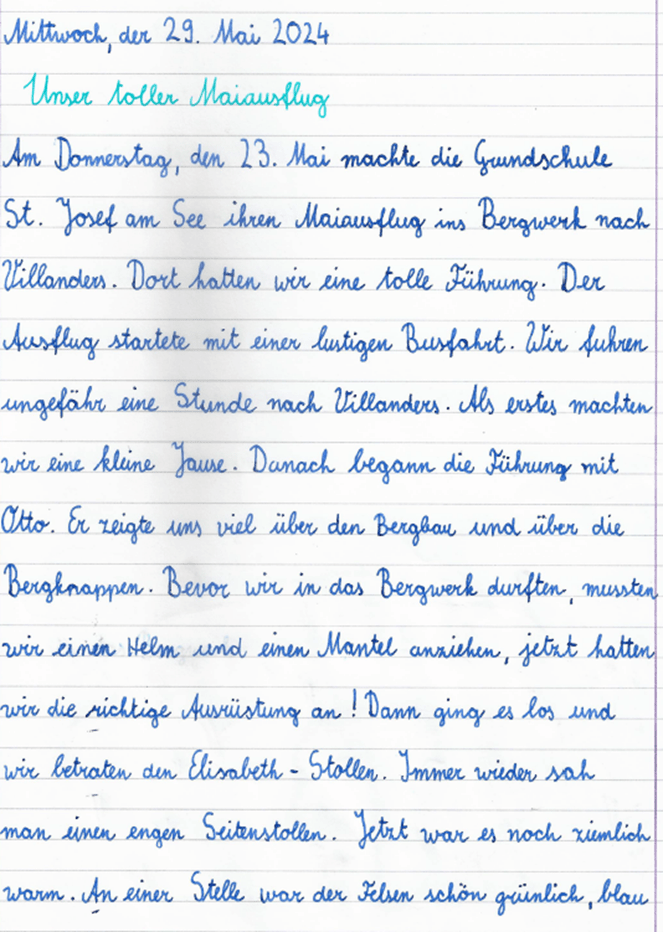 Mittwoch, der 29. Mai 2024
Unser toller Maiausflug
Am Donnerstag, den 23. Mai machte die Grundschule
St. Josef am See ihren Maiausflug ins Bergwerk nach
Villanders. Dort hatten wir eine tolle Führung. Der
Ausflug startete mit einer lustigen Busfahrt. Wir fuhren
ungefähr eine Stunde nach Villanders. Als erstes machten
wir eine kleine Jause. Danach begann die Führung mit
Otto. Er zeigte uns viel über den Bergbau und über die
Bergknappen. Bevor wir in das Bergwerk durften, mussten
wir einen Helm und einen Mantel anziehen, jetzt hatten
wir die richtige Ausrüstung an! Dann ging es los und
wir betraten den Elisabeth - Stollen. Immer wieder sah
man einen engen Seitenstollen. Jetzt war es noch ziemlich
warm. An einer Stelle war der Felsen schön grünlich, blau